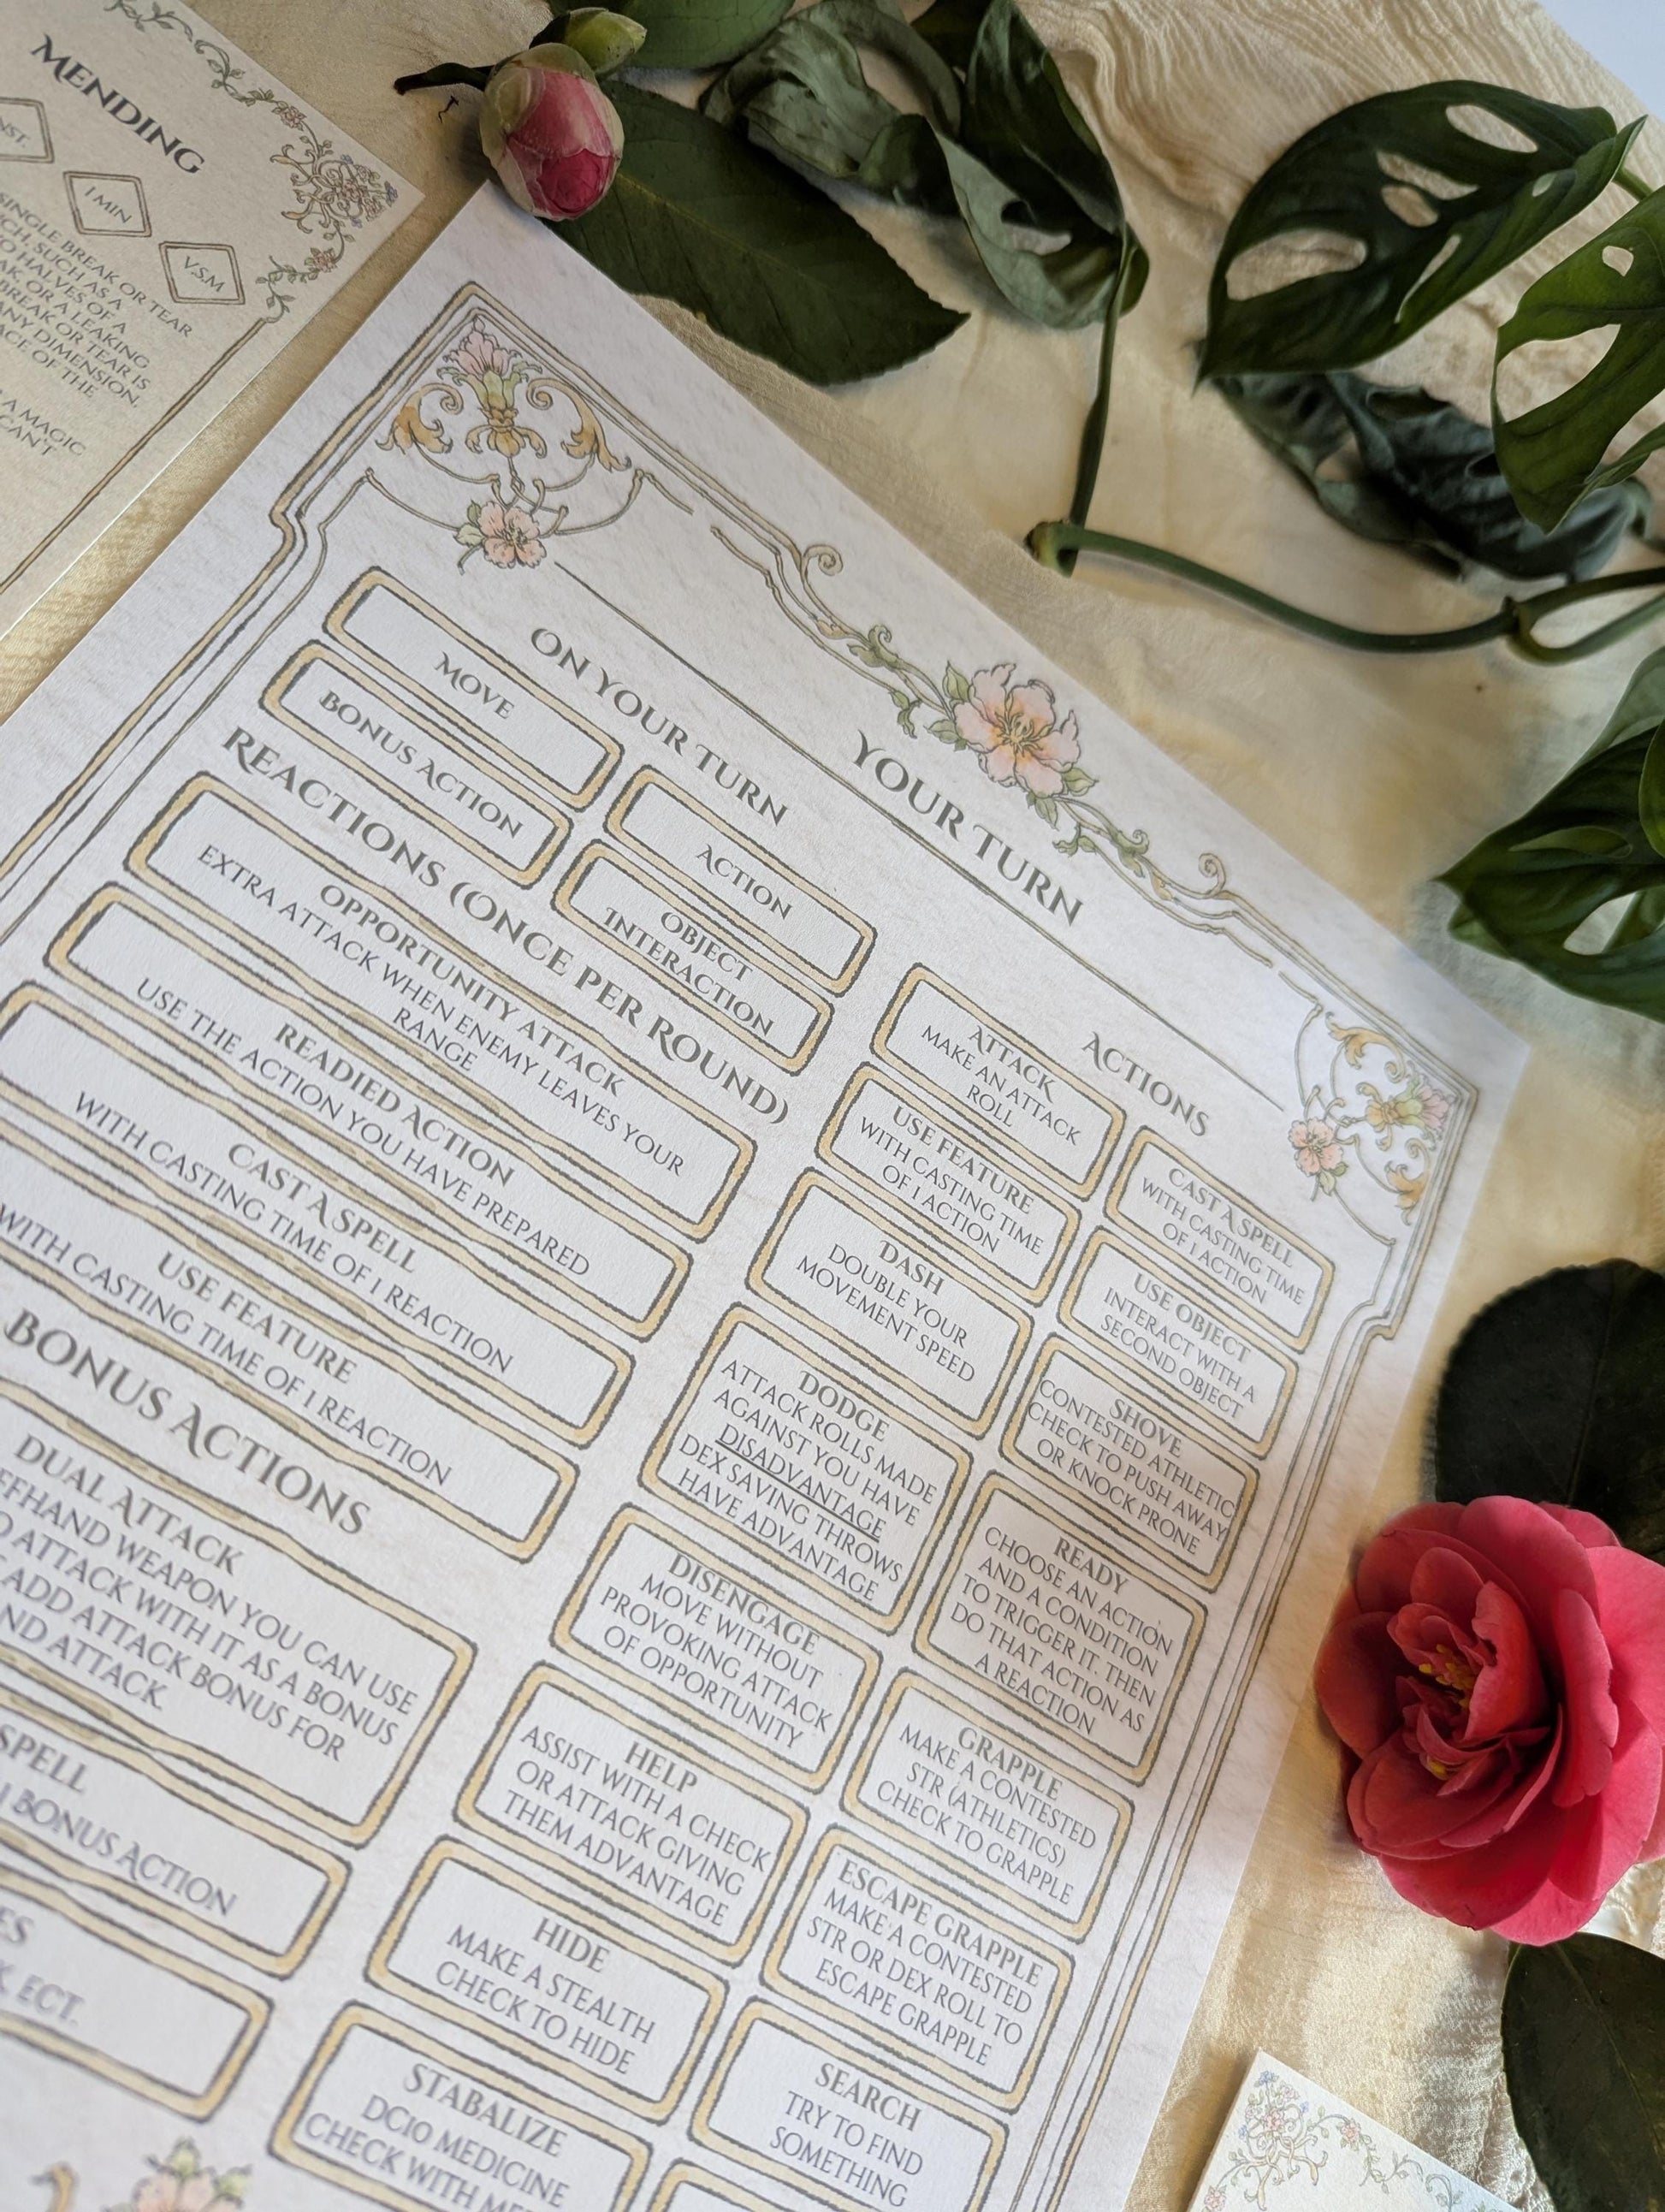 MENDING
1 MIN
V.S.M
SINGLE BREAK OR TEAR
SUCH AS A
HALVES OF A
OR A LEAKING
BREAK OR TEAR IS
ANY DIMENSION,
OF THE
A MAGIC
CAN'T
YOUR TURN
ON YOUR TURN
MOVE
ACTION
BONUS ACTION
OBJECT
INTERACTION
REACTIONS (ONCE PER ROUND)
OPPORTUNITY ATTACK
EXTRA ATTACK WHEN ENEMY LEAVES YOUR
RANGE
READIED ACTION
USE THE ACTION YOU HAVE PREPARED
CAST A SPELL
WITH CASTING TIME OF 1 REACTION
USE FEATURE
WITH CASTING TIME OF 1 REACTION
BONUS ACTIONS
DUAL ATTACK
WEAPON YOU CAN USE
ATTACK WITH IT AS A BONUS
ADD ATTACK BONUS FOR
ATTACK.
SPELL
1 BONUS ACTION
ECT.
ACTIONS
ATTACK
MAKE AN ATTACK
ROLL
CAST A SPELL
WITH CASTING TIME
OF 1 ACTION
USE FEATURE
WITH CASTING TIME
OF 1 ACTION
USE OBJECT
INTERACT WITH A
SECOND OBJECT
DASH
DOUBLE YOUR
MOVEMENT SPEED
SHOVE
CONTESTED ATHLETIC
CHECK TO PUSH AWAY
OR KNOCK PRONE
DODGE
ATTACK ROLLS MADE
AGAINST YOU HAVE
DISADVANTAGE
DEX SAVING THROWS
HAVE ADVANTAGE
READY
CHOOSE AN ACTION
AND A CONDITION
TO TRIGGER IT. THEN
DO THAT ACTION AS
A REACTION
DISENGAGE
MOVE WITHOUT
PROVOKING ATTACK
OF OPPORTUNITY
GRAPPLE
MAKE A CONTESTED
STR (ATHLETICS)
CHECK TO GRAPPLE
HELP
ASSIST WITH A CHECK
OR ATTACK GIVING
THEM ADVANTAGE
ESCAPE GRAPPLE
MAKE A CONTESTED
STR OR DEX ROLL TO
ESCAPE GRAPPLE
HIDE
MAKE A STEALTH
CHECK TO HIDE
SEARCH
TRY TO FIND
SOMETHING
STABALIZE
DC10 MEDICINE
CHECK WITH